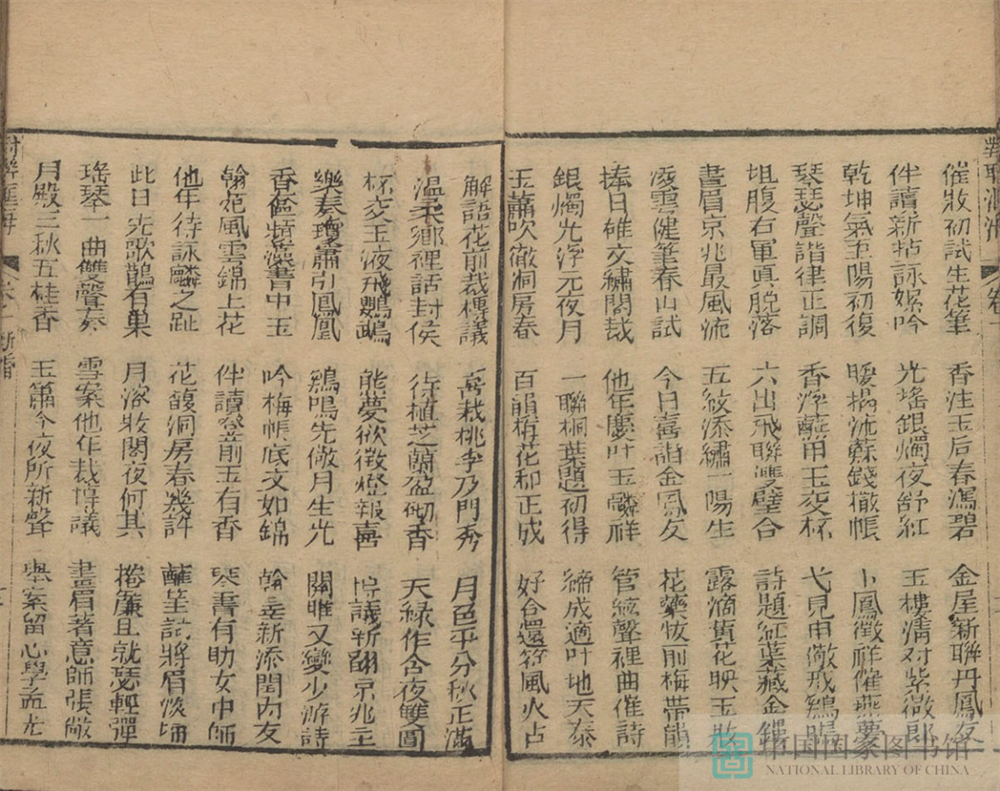 催妝初試生花筆　香注玉后春瀉碧　金屋新聯丹鳳友
伴讀新拈詠絮吟　光搖銀燭夜舒紅　玉樓淸对紫微郎
乾坤氣王陽初復　暖搨流蘇錢撤帳　卜鳳徵祥催燕夢
琴瑟聲諧律正調　香浮蘸甲玉交杯　弋鳧申儆戒鷄鳴
坦腹右軍真脫落　六出飛聯雙璧合　詩題紅葉藏金鏤
畫眉京兆最風流　五紋添繡一陽生　露滴黃花映玉妝
凌雲健筆春山試　今日喜詌金鳳友　花藥恢前梅帶韻
捧日雄文繡閣裁　他年慶叶玉麟祥　管絃聲裡曲催詩
銀燭光浮元夜月　一聯桐葉題初得　締成適叶地天泰
玉蕭吹徹洞房春　百韻梅花和正成　好合還符風火占
解語花前裁穠議　高栽桃李乃門秀　月色平分秋正滿
溫柔鄉裡話封侯　待植芝蘭盈砌香　天緑作合夜雙圓
杯交玉液飛鸚鵡　熊夢欲徵燈報喜　博議新翻京兆
樂奏瓊簫引鳳凰　鷄鳴先儆月生光　關雎又變少游詩
香奩艷瀁書中玉　吟梅帳底文如錦　翰垂新添閨内友
翰苑風雲錦上花　伴讀燈前玉有香　琴書有助女中師
他年待詠麟之趾　花馥洞房春幾許　蘸筆試將眉淡埽
此日光歌鵲有巢　月深妝閣夜何其　捲簾且就瑟輕彈
瑤琴一曲雙聲奏　雪案他年裁博議　畫眉著意師張敞
月殿三秋五桂香　玉簫今夜听新聲　舉案留心學孟光
中国国家图书馆
NATIONAL LIBRARY OF CHINA